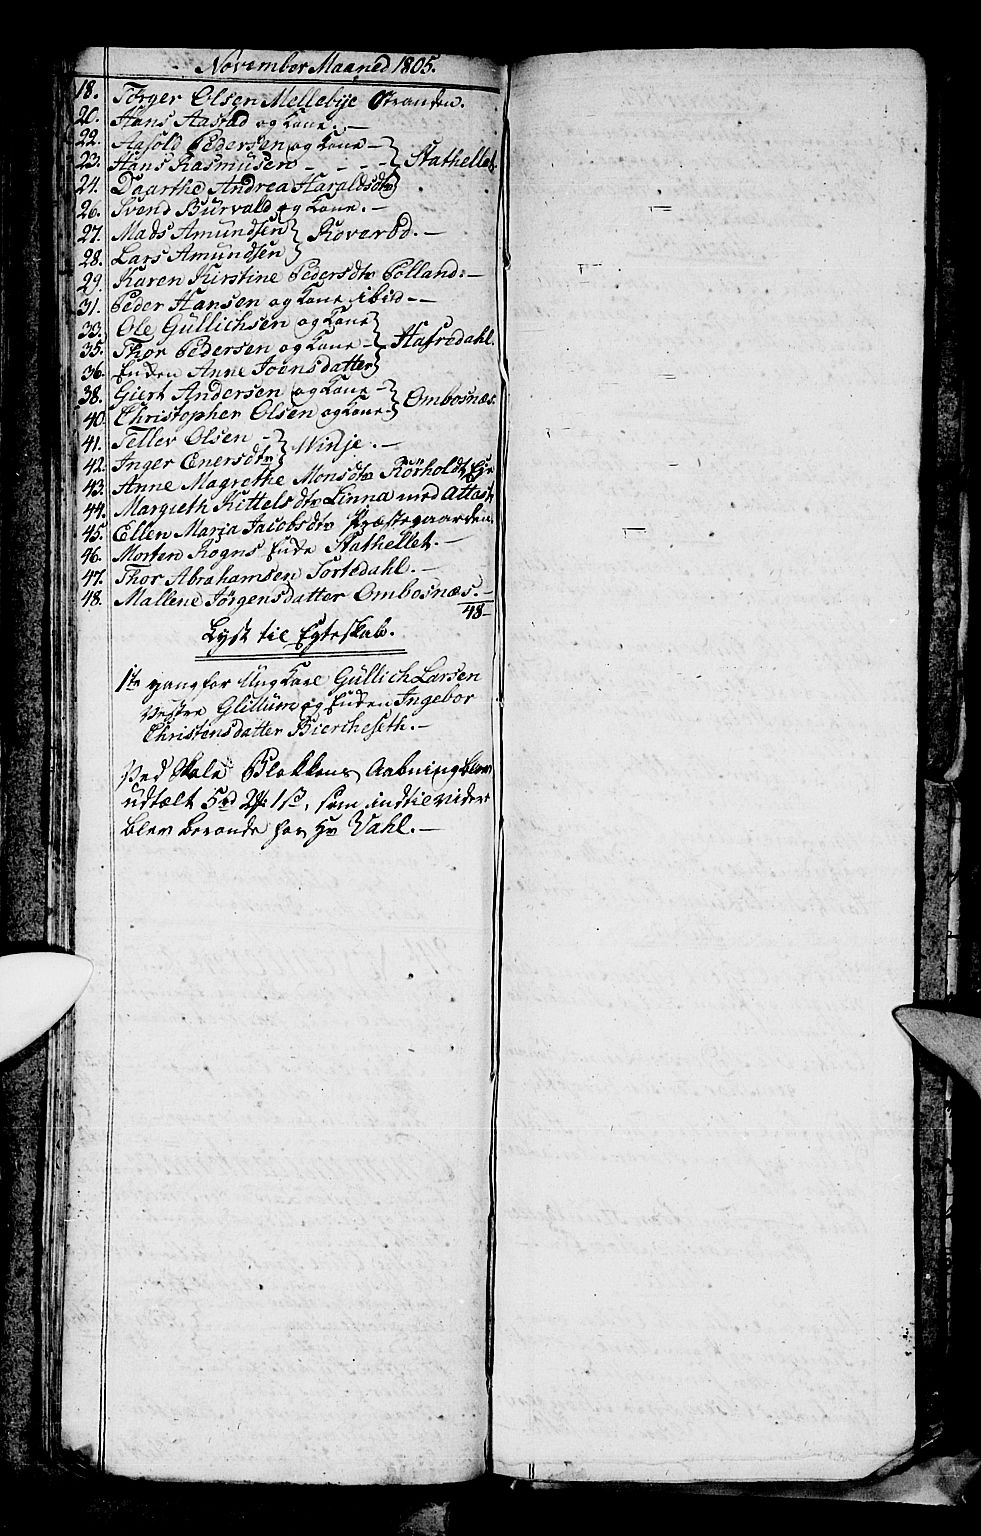 November Maaned 1805.
18. Törger Olsen Mellebye Stranden.
20. Hans Aastad og Kone. —
22. Aasold Pedersen og Kone —
23. Hans Rasmusen - - - Stathellet
24. Daarthe Andrea Haraldsdtr
26. Svend Burvald og Kone. —
27. Mads Amundsen
Roveröd. —
28. Lars Amundsen
29. Karen Kirstine Pedersdtr Polland: —
31. Peder Hansen og Kone ibid. —
33. Ole Güllichsen og Kone
35. Thor Pedersen og Kone — Hafredahl.
36. Enken Anne Joensdatter
38. Giert Andersen og Kone — Ombosnæs.
40. Christopher Olsen og Kone
41. Tellev Olsen — Winje. —
42. Inger Enersdtr
43. Anne Magrethe Monsdtr Rörholdt Eje
44. Margieth Kittelsdtr Linna med Attest
45. Ellen Maria Jacobsdtr Præstegaarden
46. Morten Rogns Enke Stathellet. —
47. Thor Abrahamsen Tortedahl. —
48. Mallene Jörgensdatter Ombosnæs. —
48 —
Lyst til Egteskab.
1ste gang for Ung Karl Güllich Larsen
Vestre Glittum og Enken Ingebor
Christensdatter Bierkeseth. —
Ved Skole Blokkens Aabning blev
udtælt 5rd 2 1s, som indtil videre
blev beroende hos Hr Vahl. —